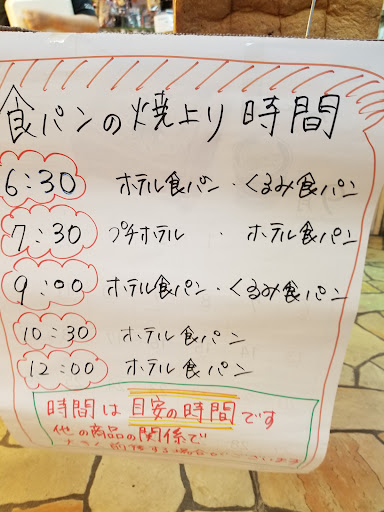 食パンの焼上り時間
6:30 ホテル食パン・くるみ食パン
7:30 プチホテル ・ ホテル食パン
9:00 ホテル食パン・くるみ食パン
10:30 ホテル食パン
12:00 ホテル食パン
時間は目安の時間です
他の商品の関係で
大きく前後する場合がございます